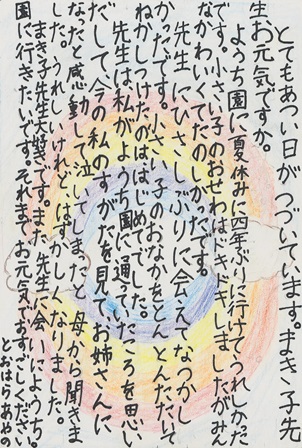 とてもあつい日がつづいています。まき子先
生お元気ですか。
ようち園に夏休みに四年ぶりに行けてうれしかった
です。小さい子のおせわはドキドキしましたがみん
なかわいくてたのしかったです。
先生にひさしぶりに会えてなつかし
かったです。小さい子のおなかをとんとんたたいて
ねかしつけたのははじめてでした。
先生は私がようち園に通ってたころを思い
だして、今の私のすがたを見て、お姉さんに
なったと感動して泣いてしまったと母から聞きま
した。うれしいけれど、はずかしくなりました。
まき子先生大好きです。また先生に会いにようち
園に行きたいです。それまでお元気ですごしてください。
とおはらあやの